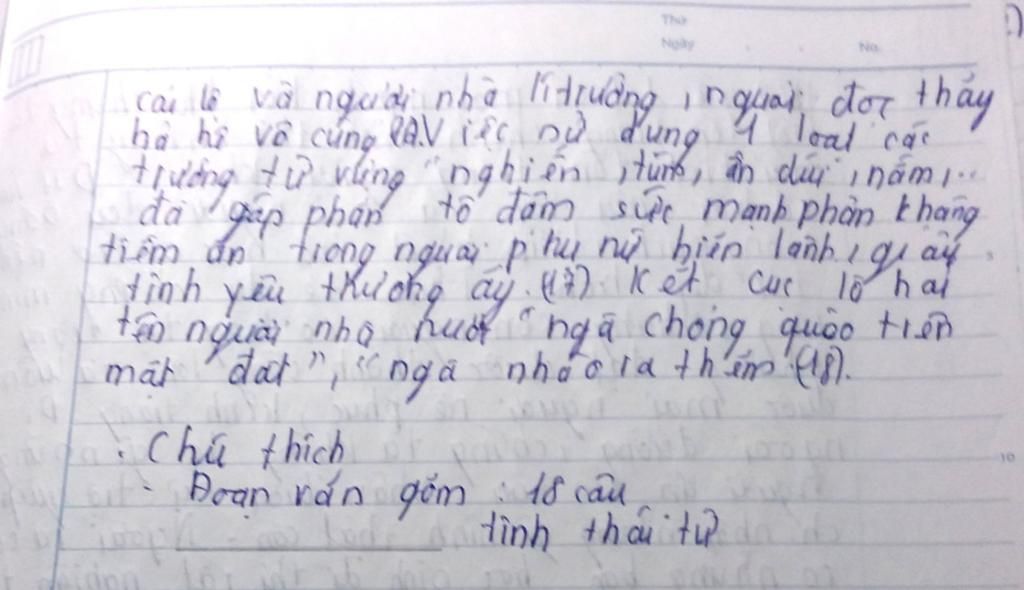 Thứ
Ngày
No.
cai lệ và người nhà lí trưởng, người đọc thấy
hả hê vô cùng. Việc sử dụng 1 loạt các
trường từ vựng "nghiến, túm, ấn dúi, nắm,..
đã góp phần tô đậm sức mạnh phản kháng
tiềm ẩn trong người phụ nữ hiền lành, giàu
tình yêu thương ấy. (17) Kết cục là hai
tên người nhà "ngã chỏng quèo trên
mặt đất", "ngã nhào ra thềm (18).
. Chú thích
- Đoạn văn gồm : 18 câu
tình thái từ
10